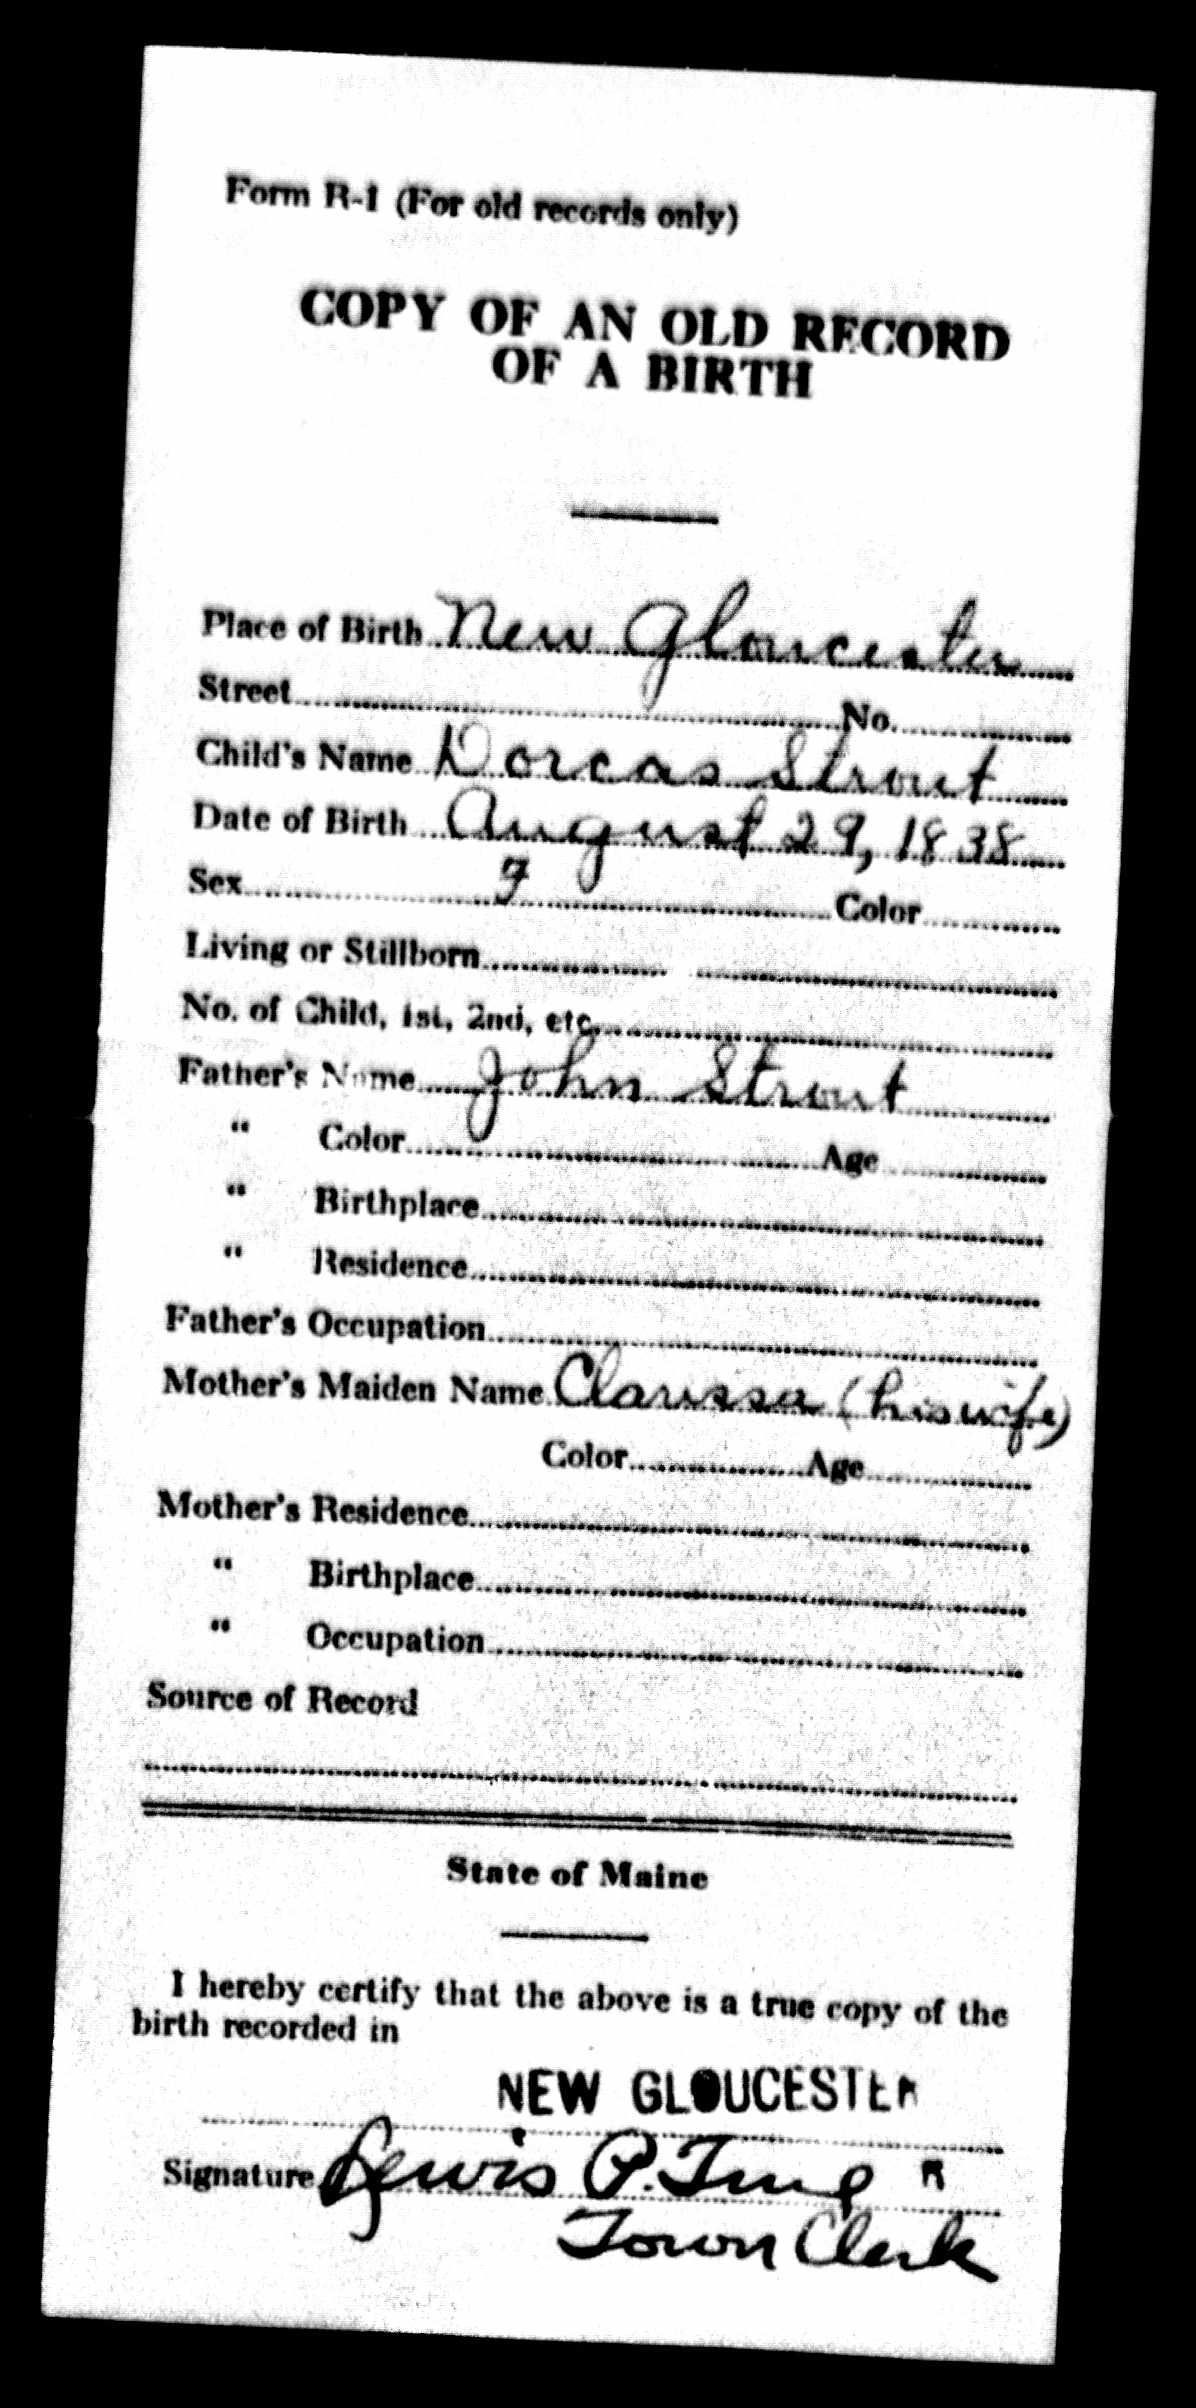 Form R-1 (For old records only)
COPY OF AN OLD RECORD
OF A BIRTH
Place of Birth New Gloucester
Street No.
Child's Name Dorcas Strout
Date of Birth August 29, 1838
Sex F Color
Living or Stillborn
No. of Child, 1st, 2nd, etc.
Father's Name John Strout
" Color Age
" Birthplace
" Residence
Father's Occupation
Mother's Maiden Name Clarissa (his wife)
Color Age
Mother's Residence
" Birthplace
" Occupation
Source of Record
State of Maine
I hereby certify that the above is a true copy of the
birth recorded in
NEW GLOUCESTER
Signature Lewis P. R
Town Clerk